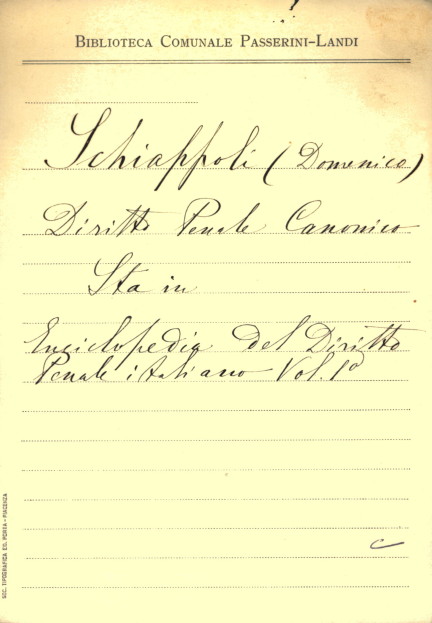 BIBLIOTECA COMUNALE PASSERINI-LANDI
Schiappoli (Domenico)
Diritto Penale Canonico
Sta in
Enciclopedia del Diritto
Penale italiano Vol. 1º
C
SOC. TIPOGRAFICA ED. PORTA - PIACENZA